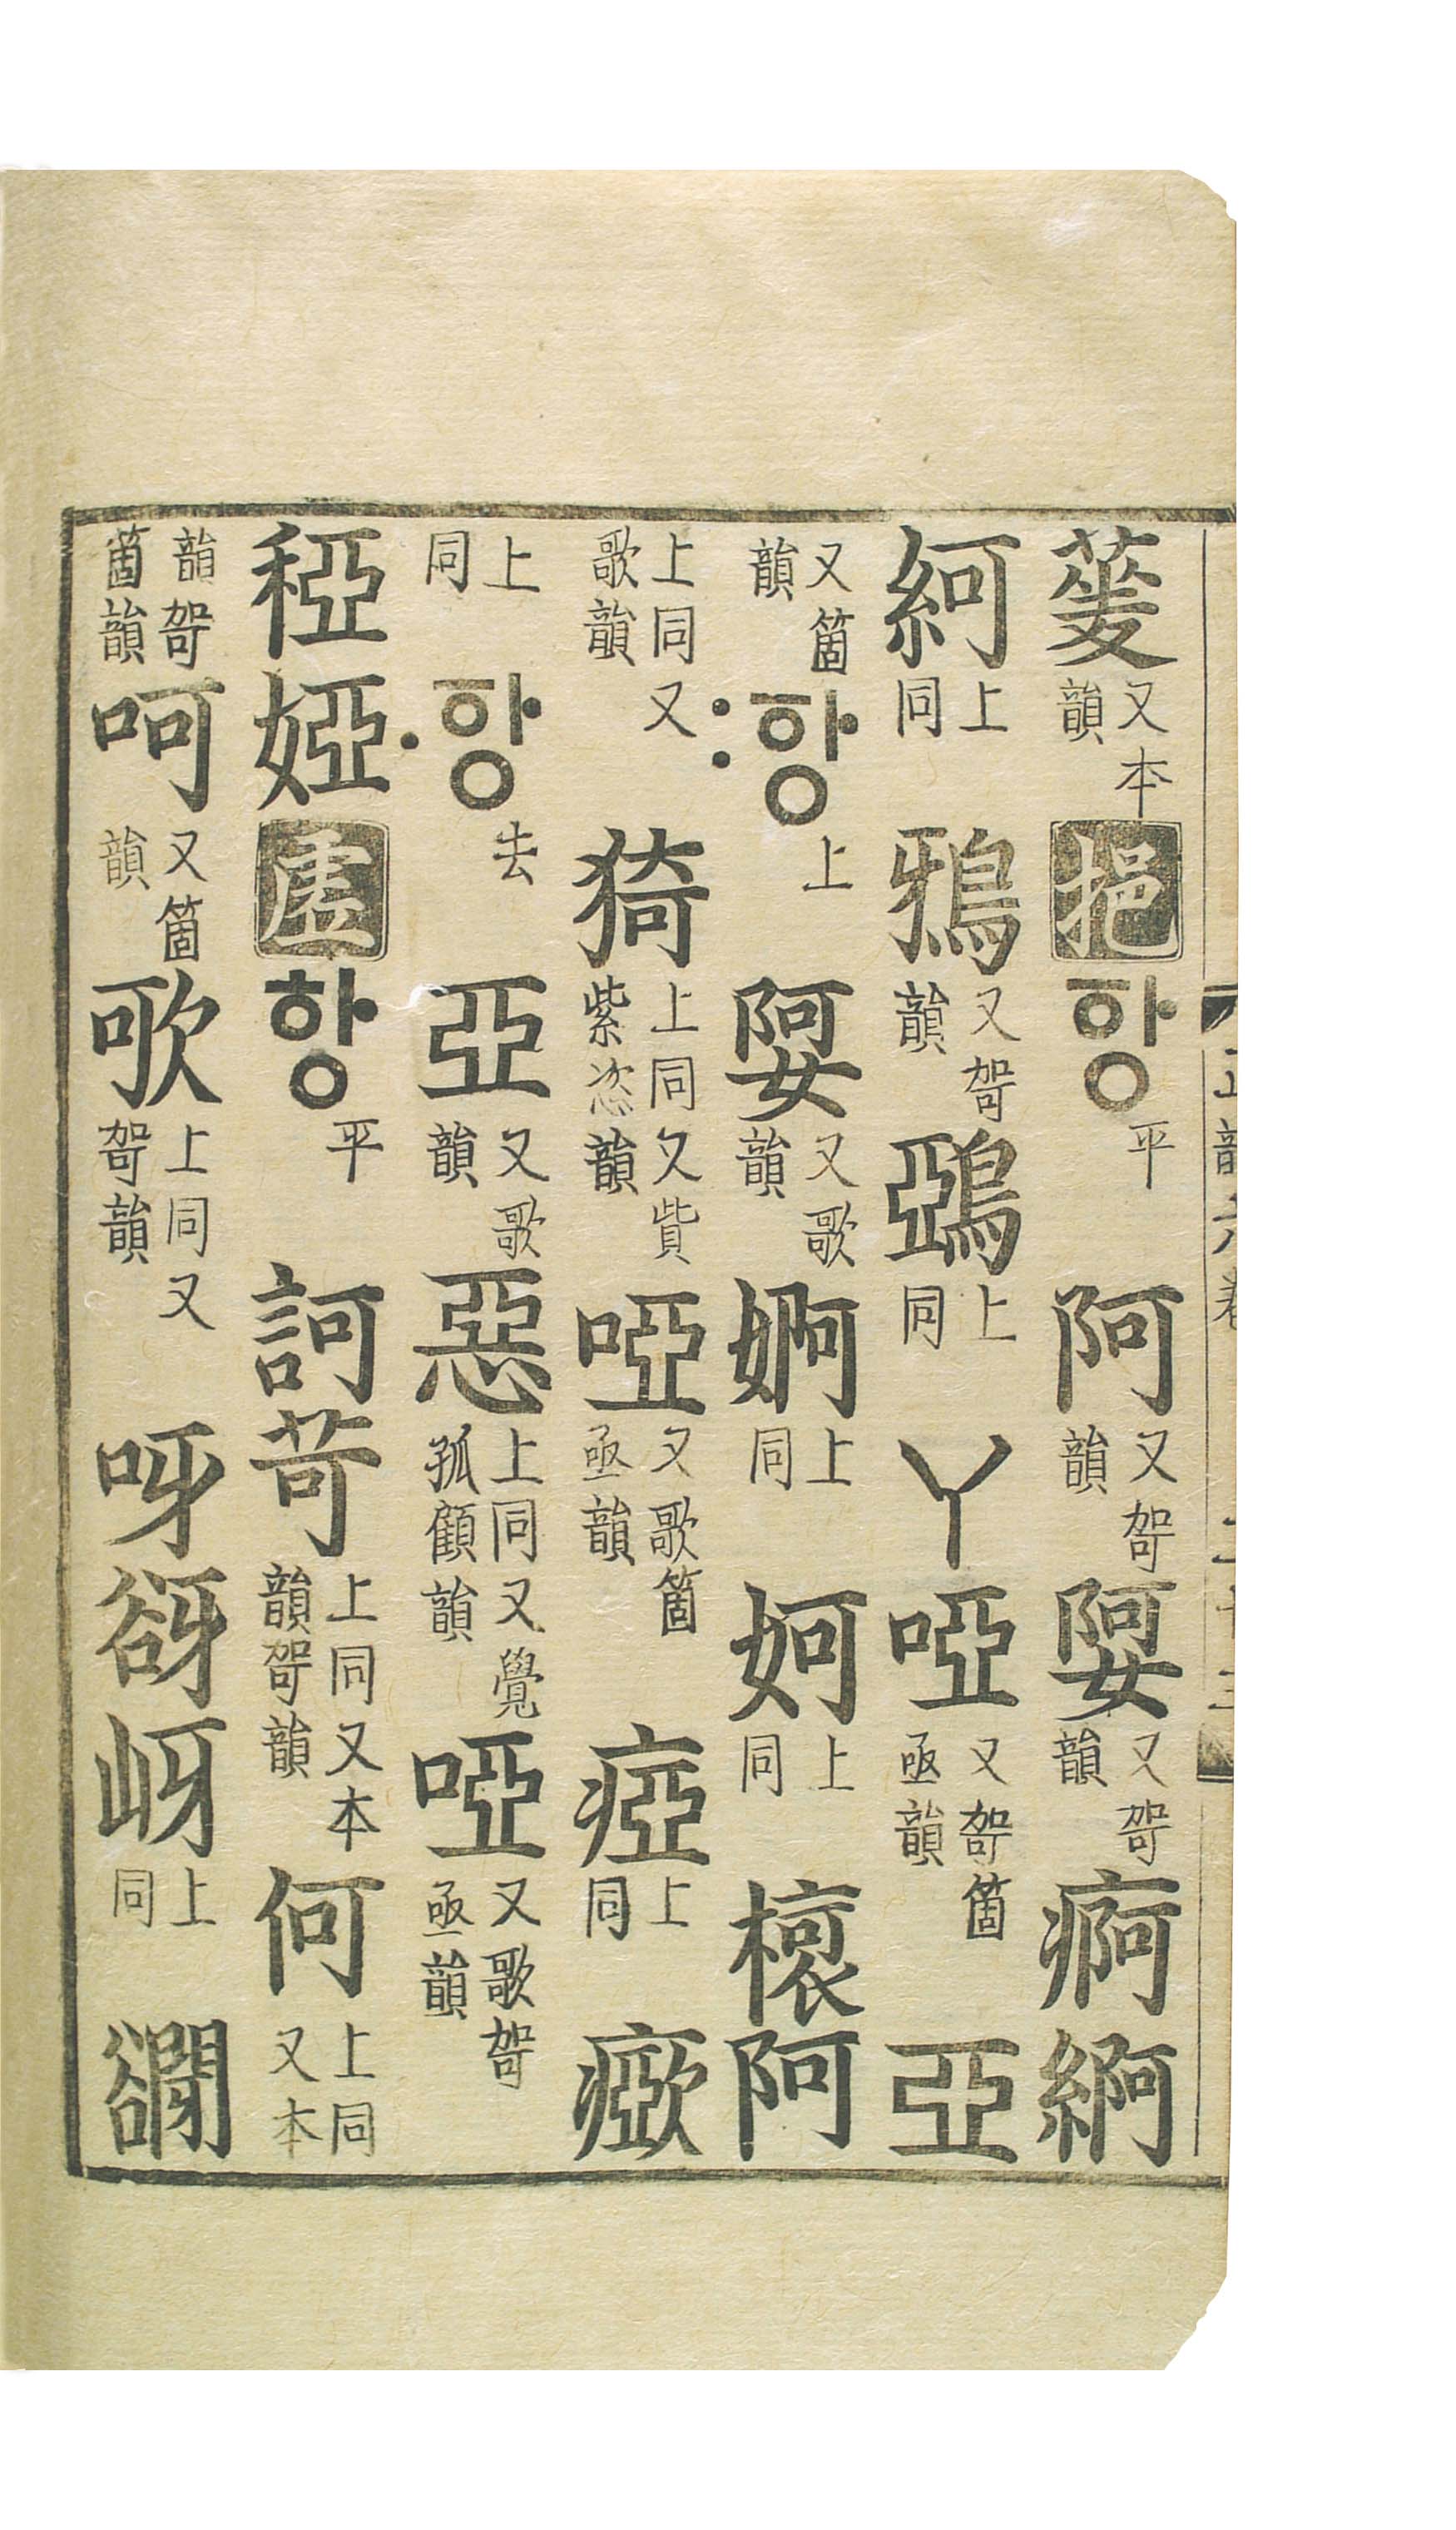 蓌又本韻挹ᅙᅡᆼ平阿又哿韻娿又哿韻痾䋪
上同鴉又哿韻鵶上同丫啞又哿箇亟韻亞
又箇韻〯ᅙᅡᆼ上娿又歌韻婀上同妸上同阿
上同又歌韻猗上同又貲紫恣韻啞又歌箇亟韻瘂上同
上同〮ᅙᅡᆼ去亞又歌韻惡上同又覺孤顧韻啞又歌哿亟韻
稏婭虛항平訶苛上同又本韻哿韻何上同又本
韻哿箇韻呵又箇韻㰤上同又哿韻呀谺岈上同